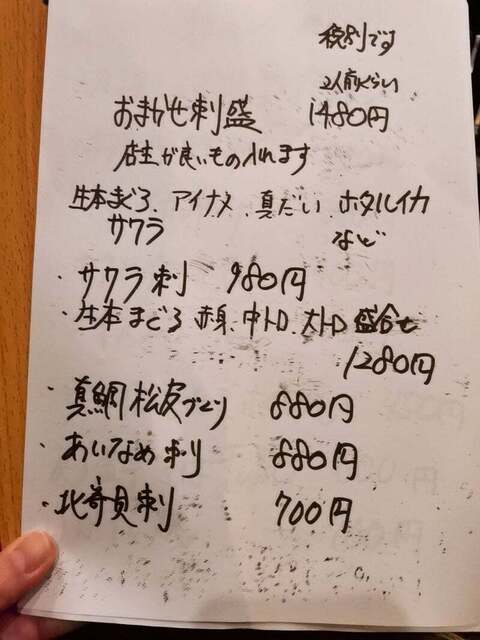 税別です
2人前くらい
おまかせ刺盛 1480円
店主が良いもの入れます
生本まぐろ、アイナメ、真だい、ホタルイカ
サワラ など
・サワラ刺 980円
・生本まぐろ 赤身、中トロ、大トロ 盛合せ
1280円
・真鯛松皮づくり 880円
・あいなめ刺 880円
・北寄貝刺 700円